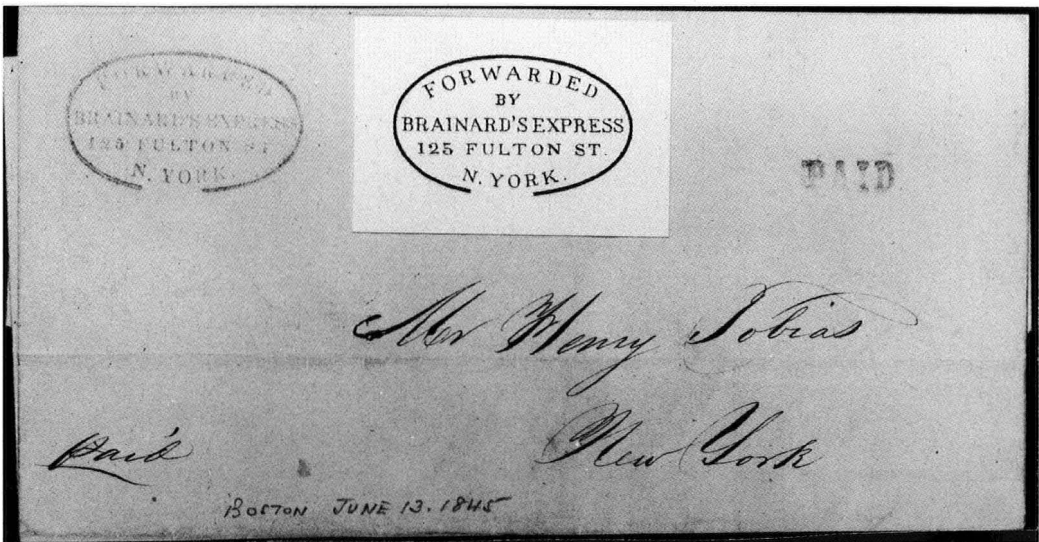 FORWARDED
BY
BRAINARD'S EXPRESS
125 FULTON ST
N. YORK.
FORWARDED
BY
BRAINARD'S EXPRESS
125 FULTON ST.
N. YORK.
PAID
Mr Henry Tobias
New York
Paid
BOSTON JUNE 13. 1845